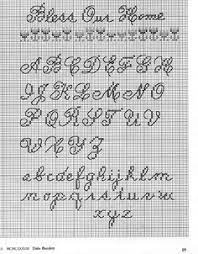 Bless Our Home
A B C D E F G H
I J K L M N O
P Q R S T U V
W X Y Z
a b c d e f g h i j k l m
n o p q r s t u v w
x y z